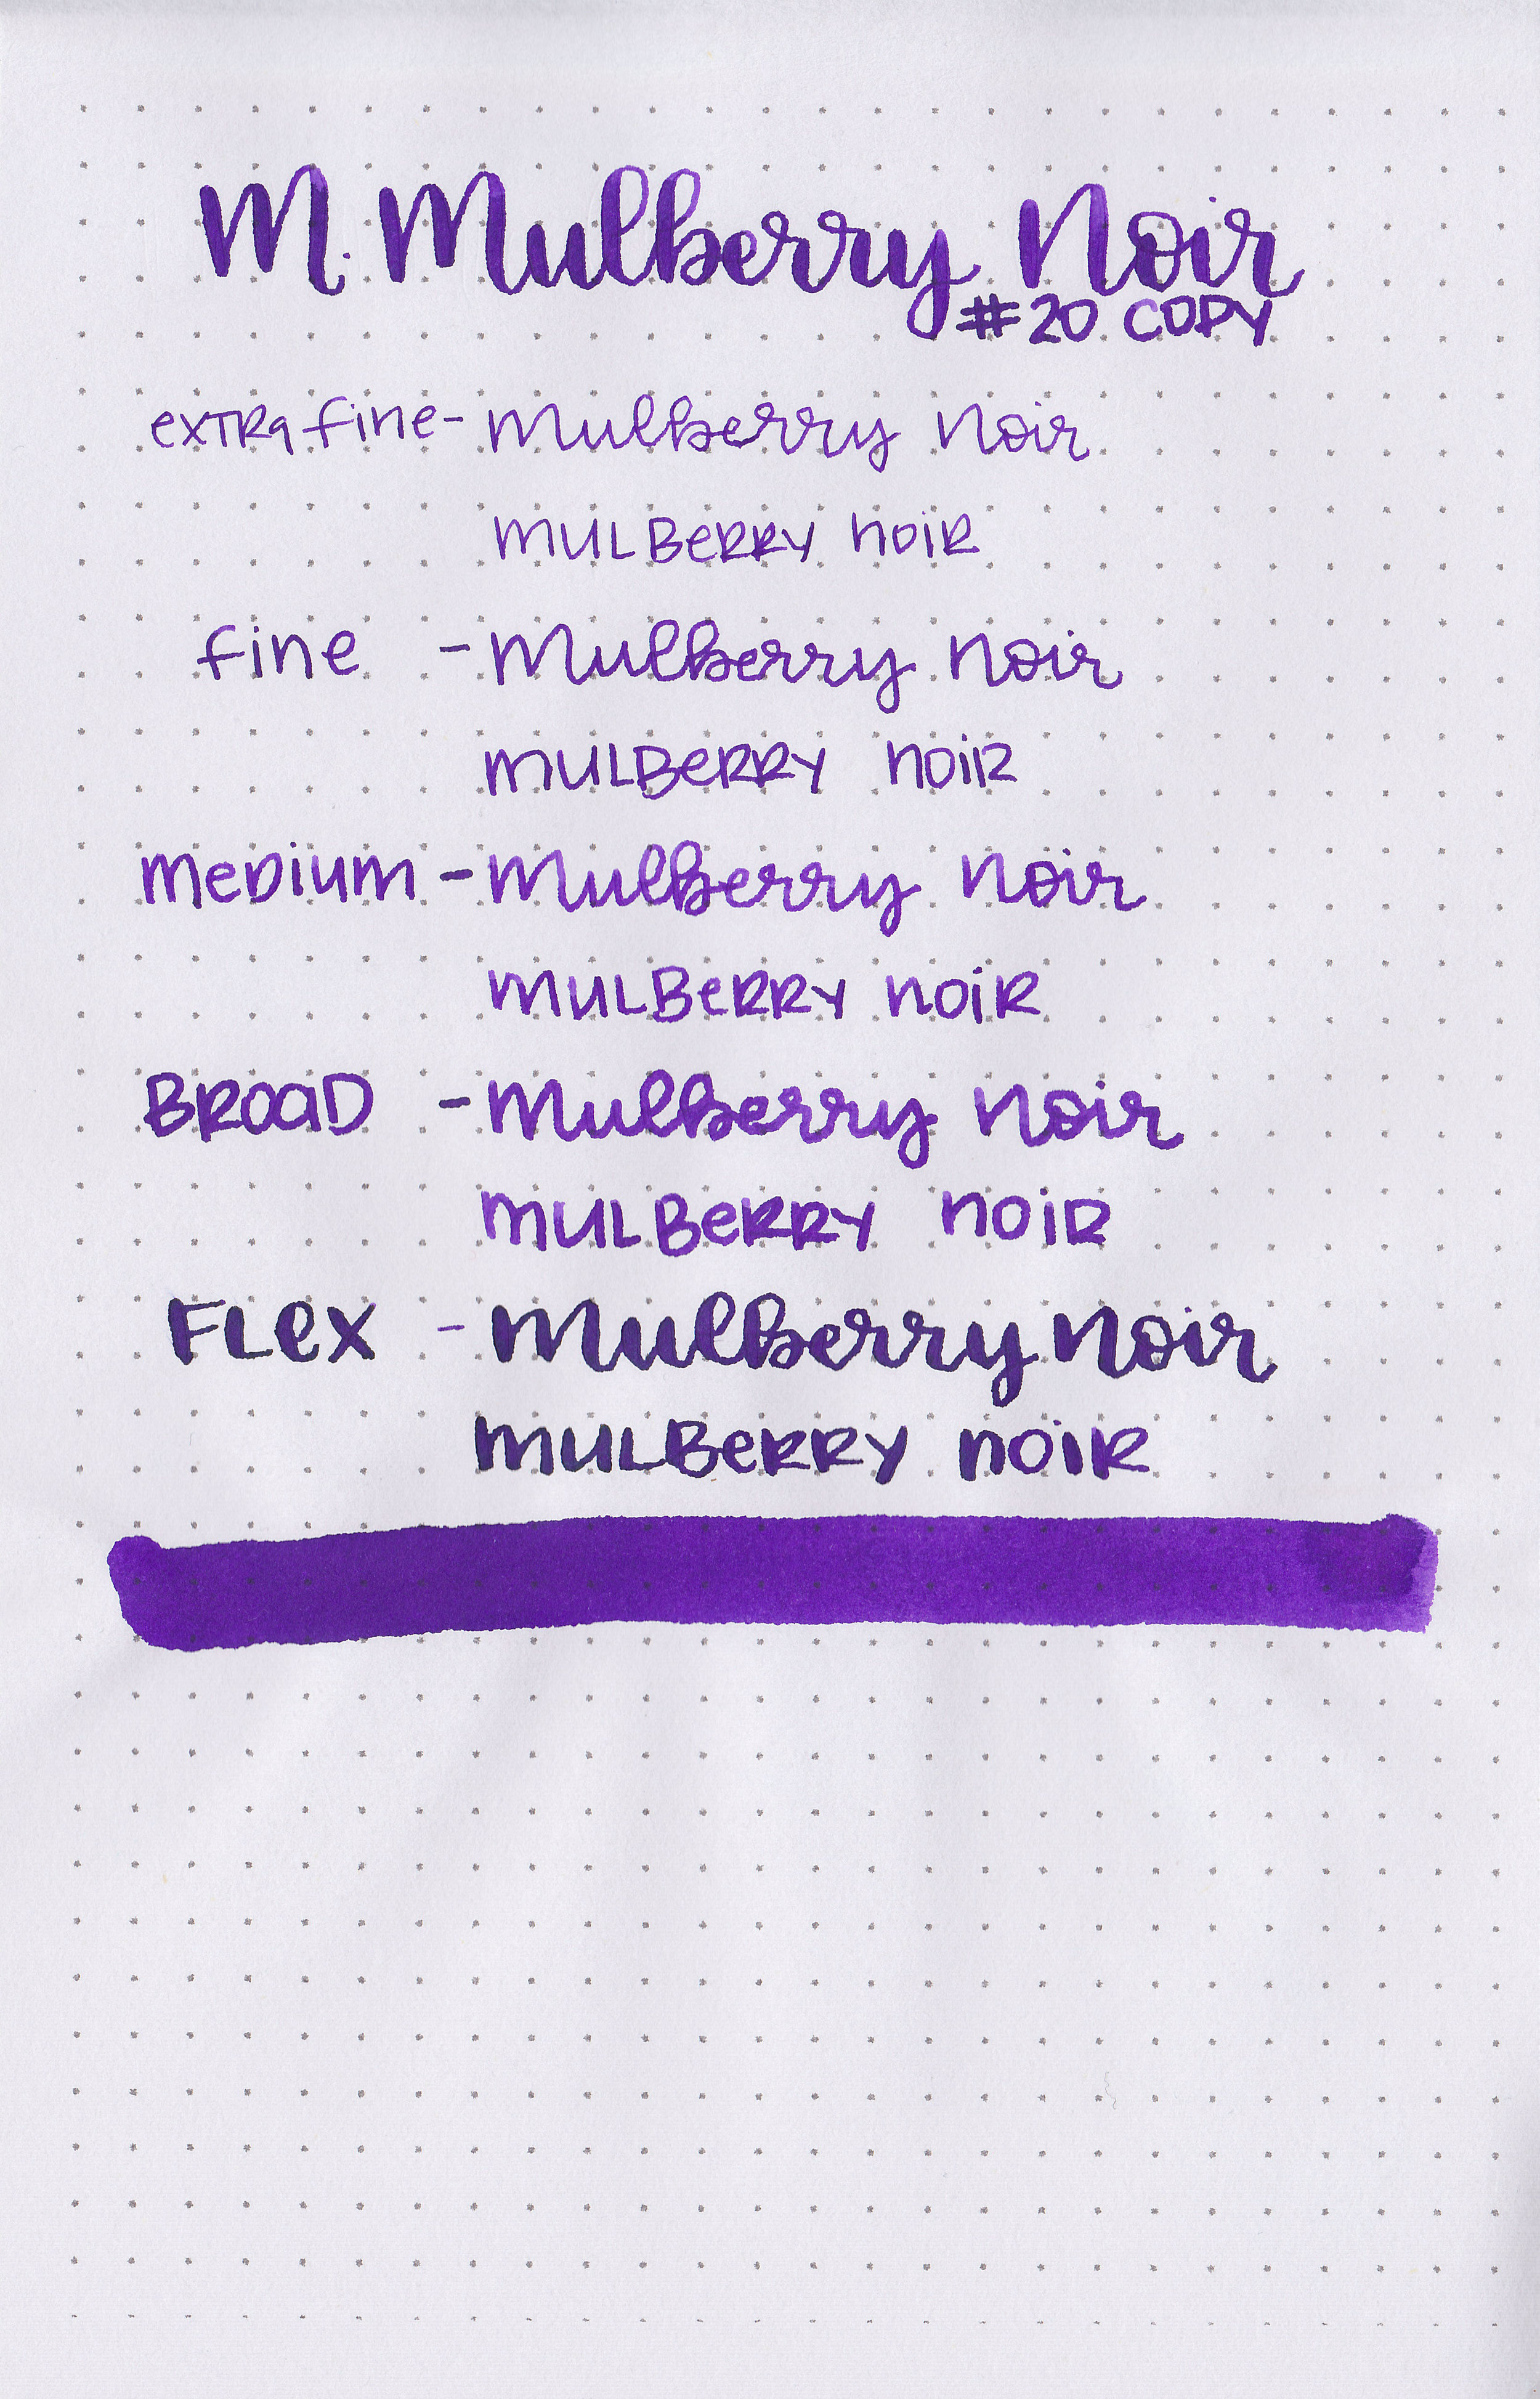 M. Mulberry Noir
#20 COPY
extra fine - Mulberry Noir
MULBERRY NOIR
fine - Mulberry Noir
MULBERRY NOIR
Medium - Mulberry Noir
MULBERRY NOIR
BROAD - Mulberry Noir
MULBERRY NOIR
FLEX - Mulberry Noir
MULBERRY NOIR